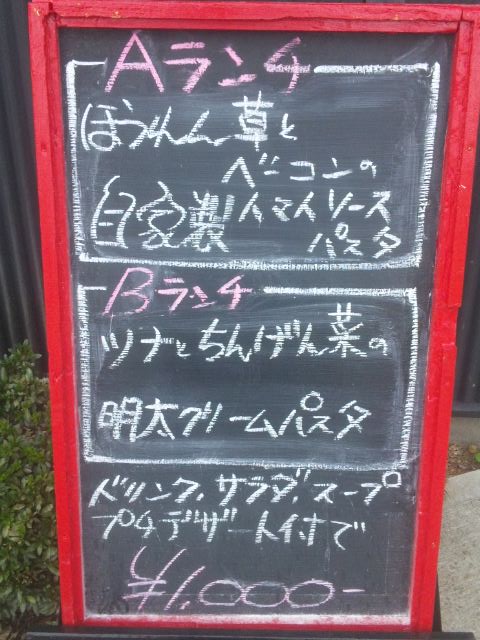 Aランチ
ほうれん草と
ベーコンの
自家製トマトソース
パスタ
Bランチ
ツナとちんげん菜の
明太クリームパスタ
ドリンク、サラダ、スープ
プチデザート付で
¥1,000-